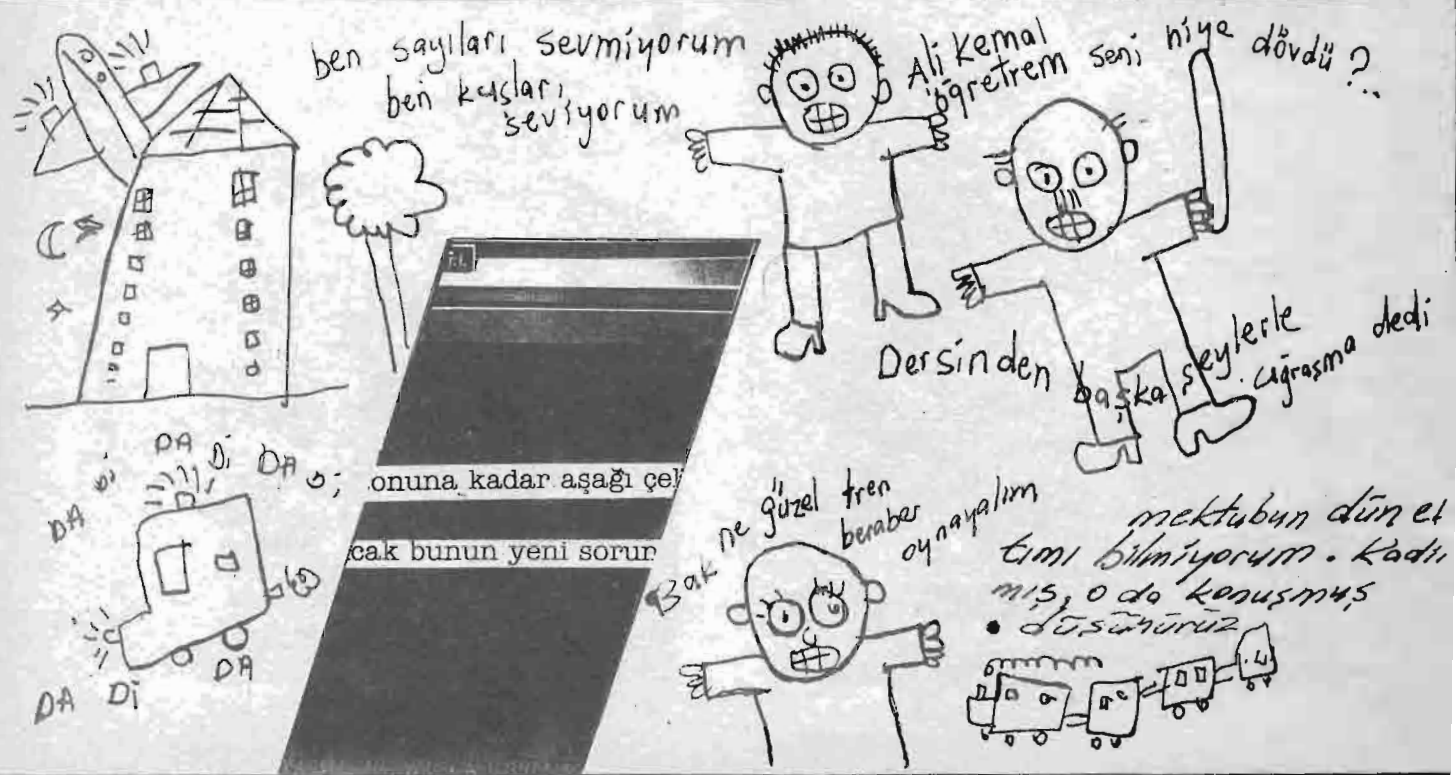 ben sayıları sevmiyorum
ben kuşları
seviyorum
Ali Kemal
öğretrem seni niye dövdü?..
Dersinden başka şeylerle
uğraşma dedi
DA Di DA Di DA Di
DA Di DA
onuna kadar aşağı çel
cak bunun yeni sorun
Bak ne güzel tren
beraber
oynayalım
mektubun dün el
tımı bilmiyorum. Kadı
mış, o da konuşmuş
• düşünürüz